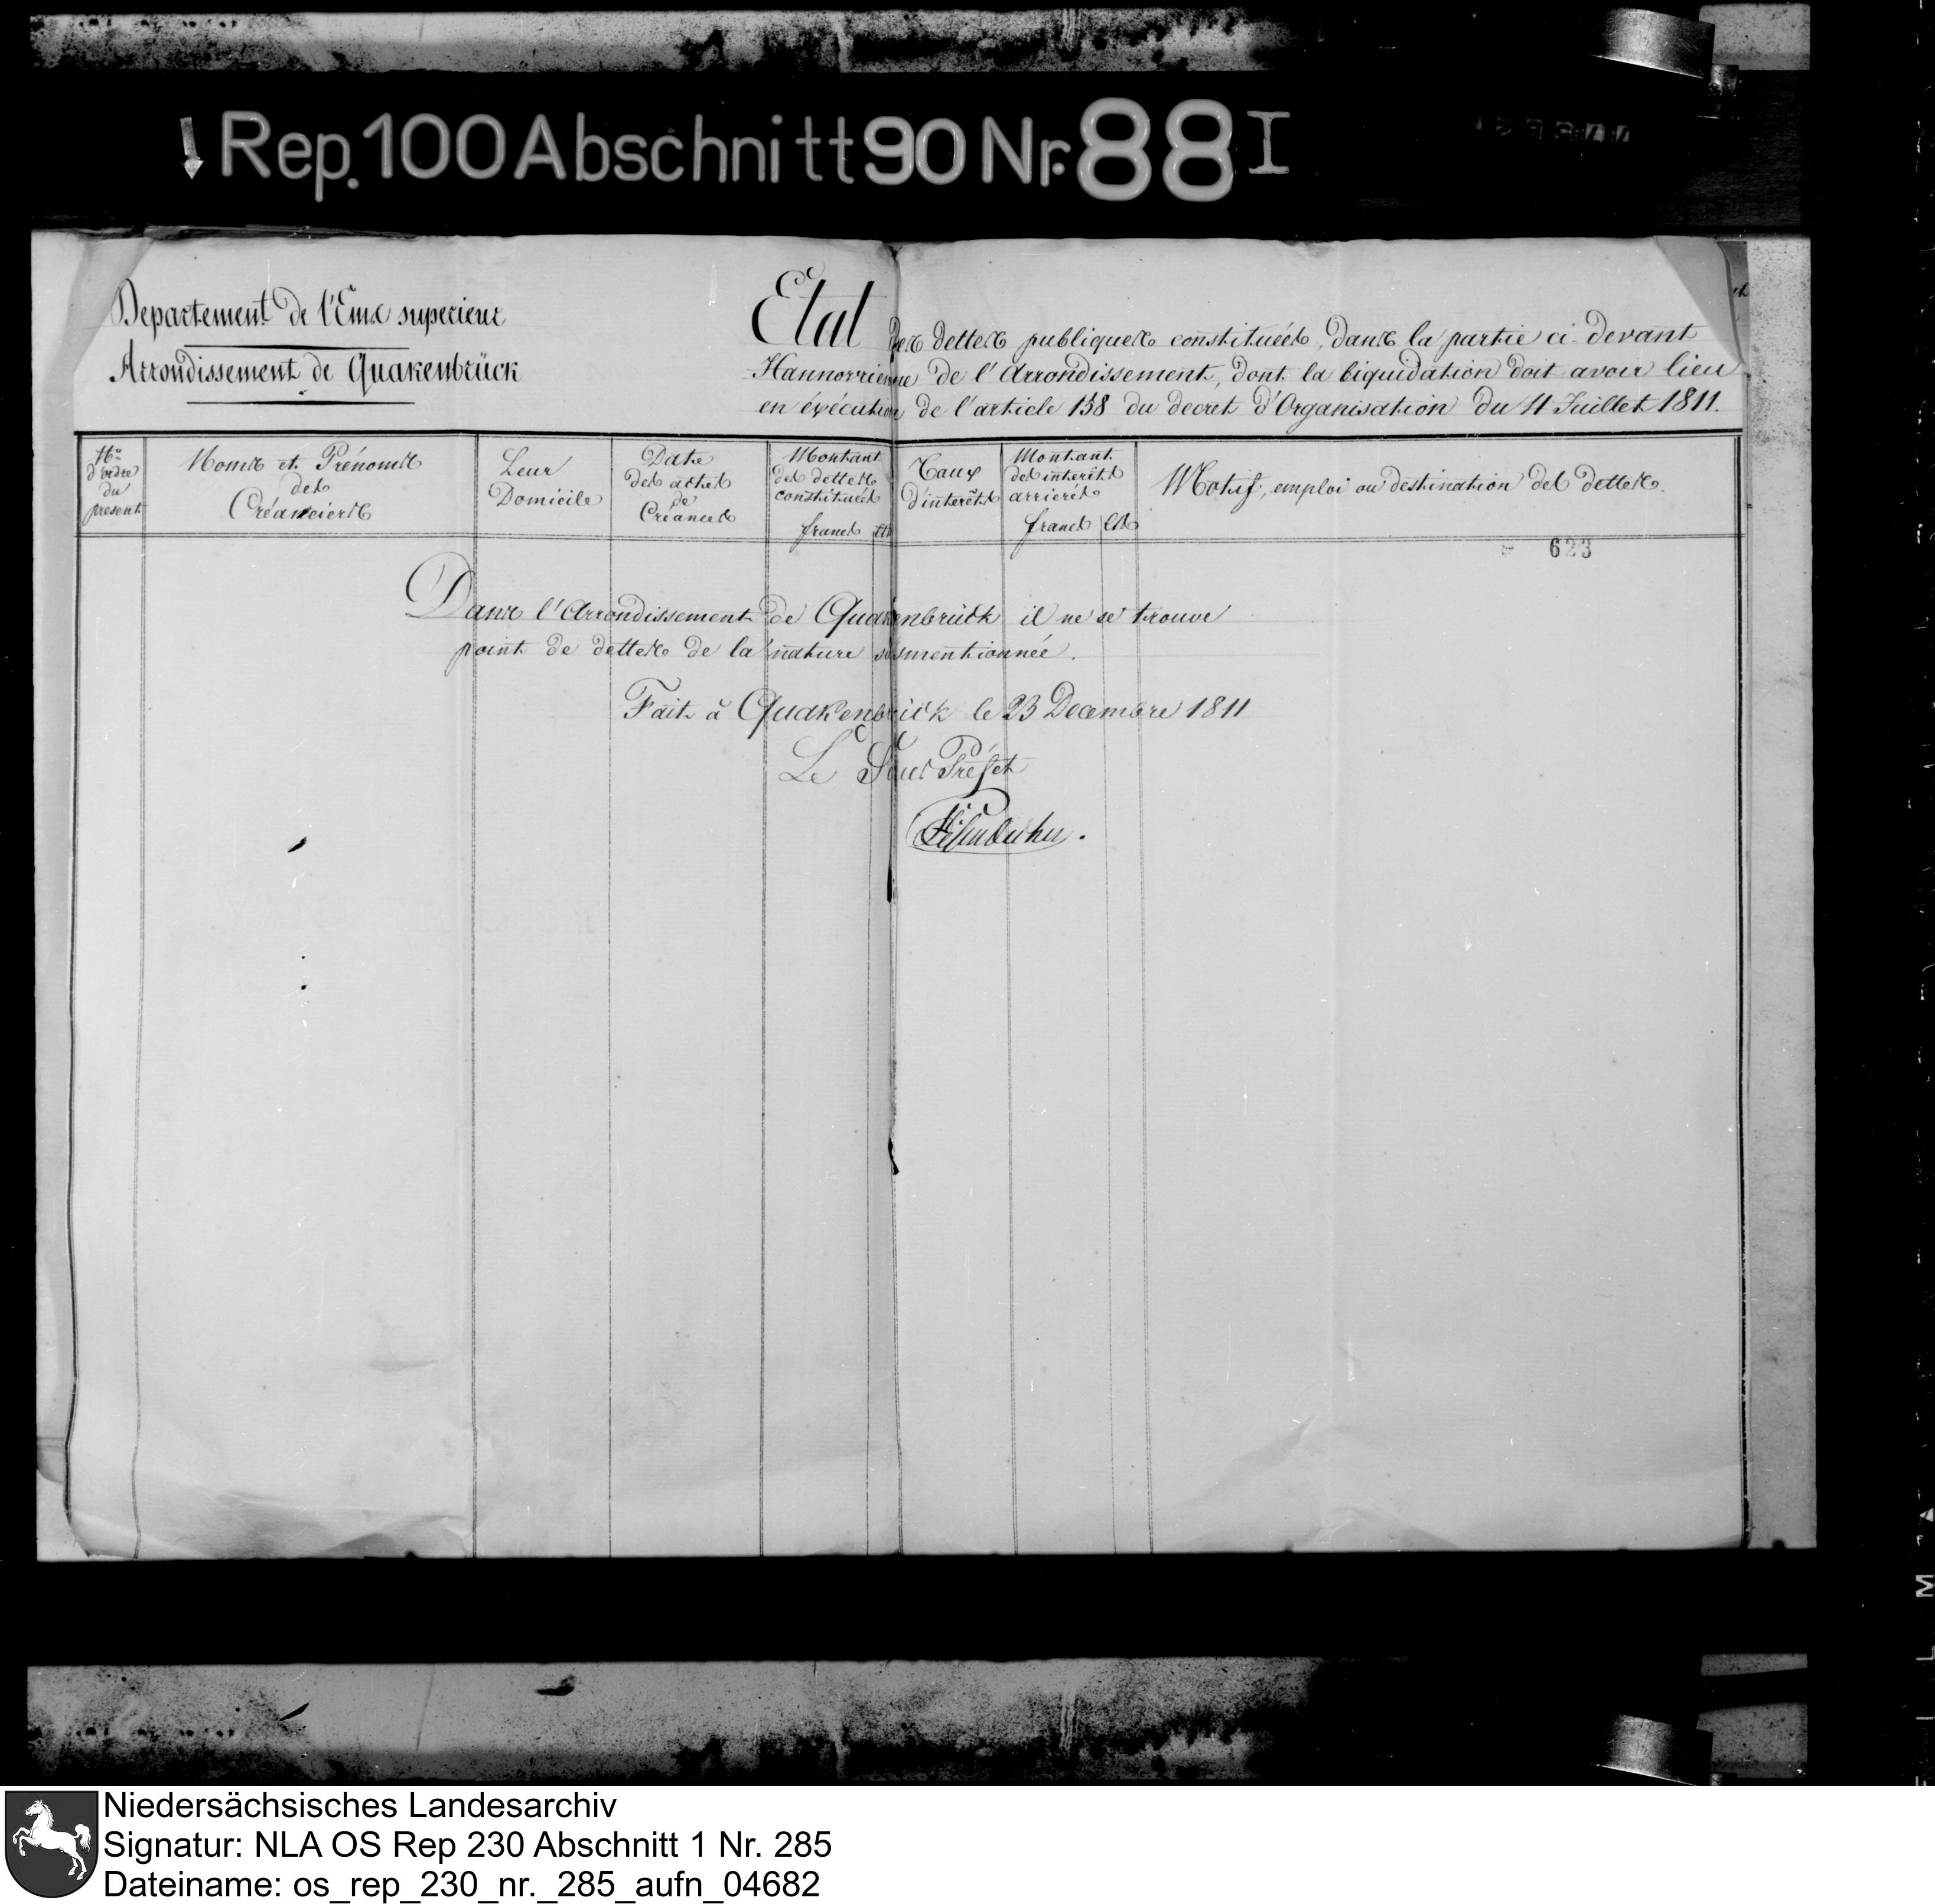 Rep. 100 Abschnitt 90 Nr. 88 I
Departement de l'Ems superieur
Arrondissement de Quakenbrück
Etat des dettes publiques constituées, dans la partie ci-devant
Hannovrienne de l'Arrondissement, dont la liquidation doit avoir lieu
en éxécution de l'article 158 du decret d'Organisation du 4 Juillet 1811.
Nro
d'ordre
du
present
Noms et Prénoms
des
Créanciers
Leur
Domicile
Date
des actes
de
Créances
Montant
des dettes
constituées
francs cts
Taux
d'interêts
Montant
des interêts
arrierés
francs cts
Motif, emploi ou destination des dettes.
623
Dans l'Arrondissement de Quakenbrück il ne se trouve
point de dettes de la nature susmentionnée.
Fait à Quakenbrück le 23 Decembre 1811
Le Sous Préfet
Niedersächsisches Landesarchiv
Signatur: NLA OS Rep 230 Abschnitt 1 Nr. 285
Dateiname: os_rep_230_nr._285_aufn_04682